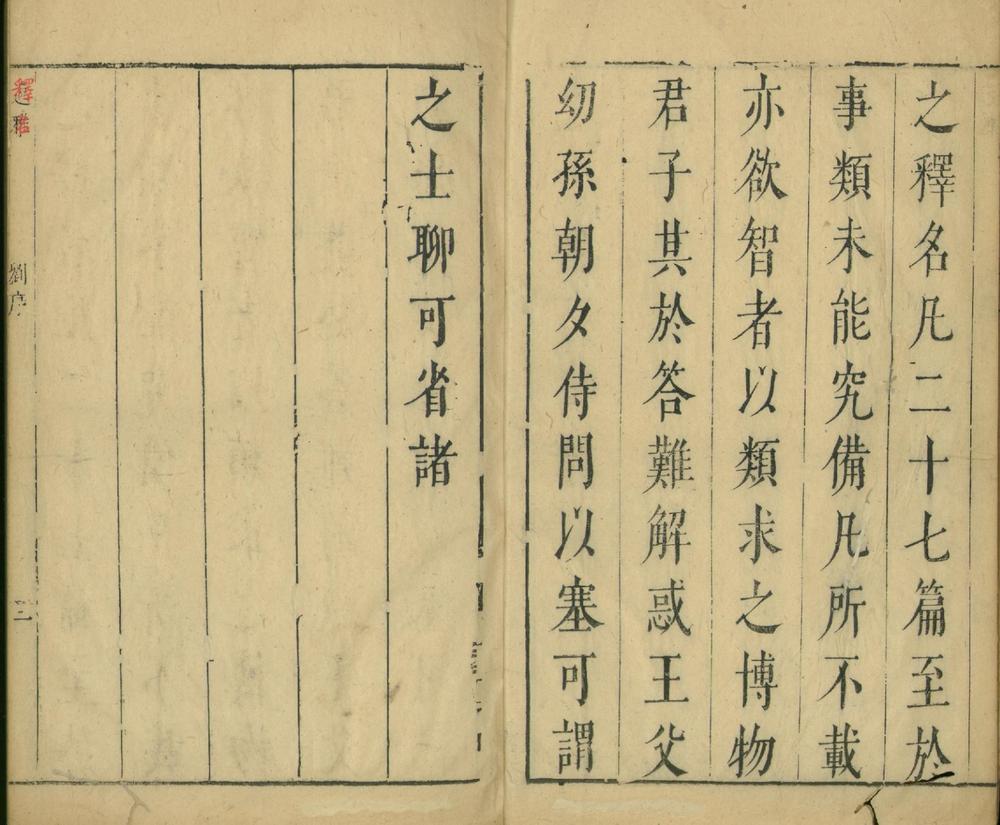 之釋名凡二十七篇至於
事類未能究備凡所不載
亦欲智者以類求之博物
君子其於答難解惑王父
幼孫朝夕侍問以塞可謂
之士聊可省諸
劉序
二